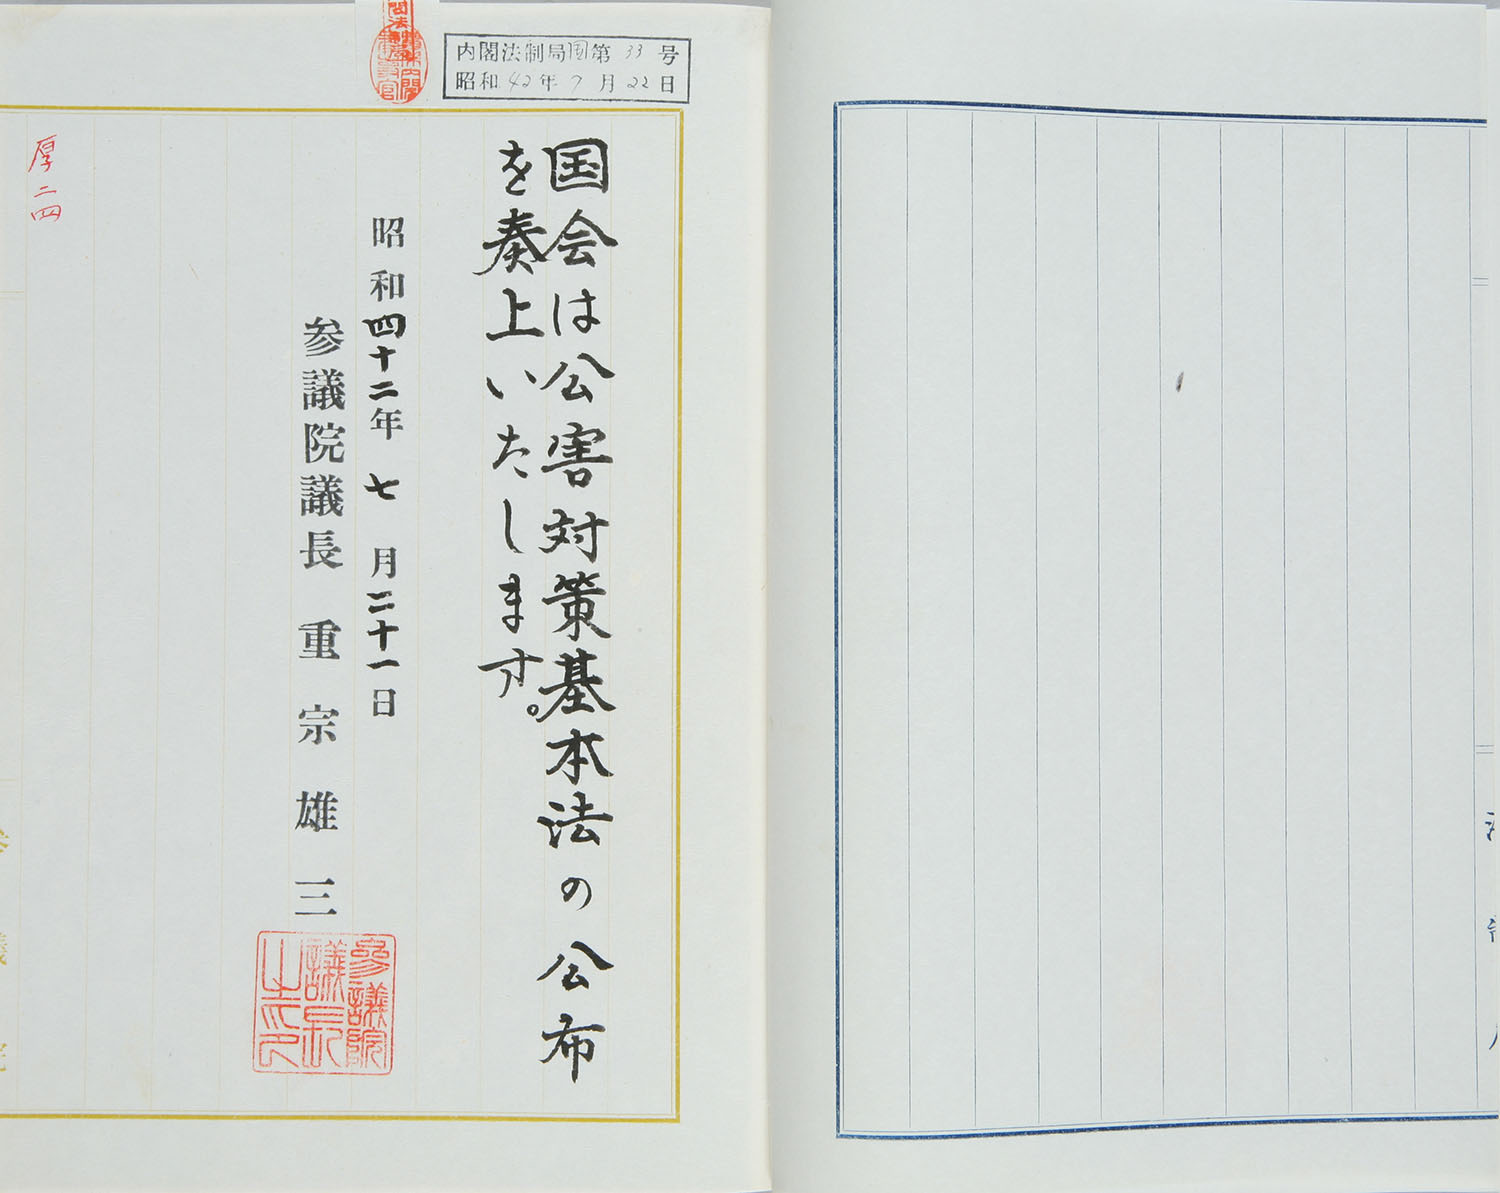 内閣法制局国第33号
昭和42年7月22日
国会は公害対策基本法の公布
を奏上いたします。
昭和四十二年七月二十一日
参議院議長 重宗雄三
参議院
議長
之印
厚二四